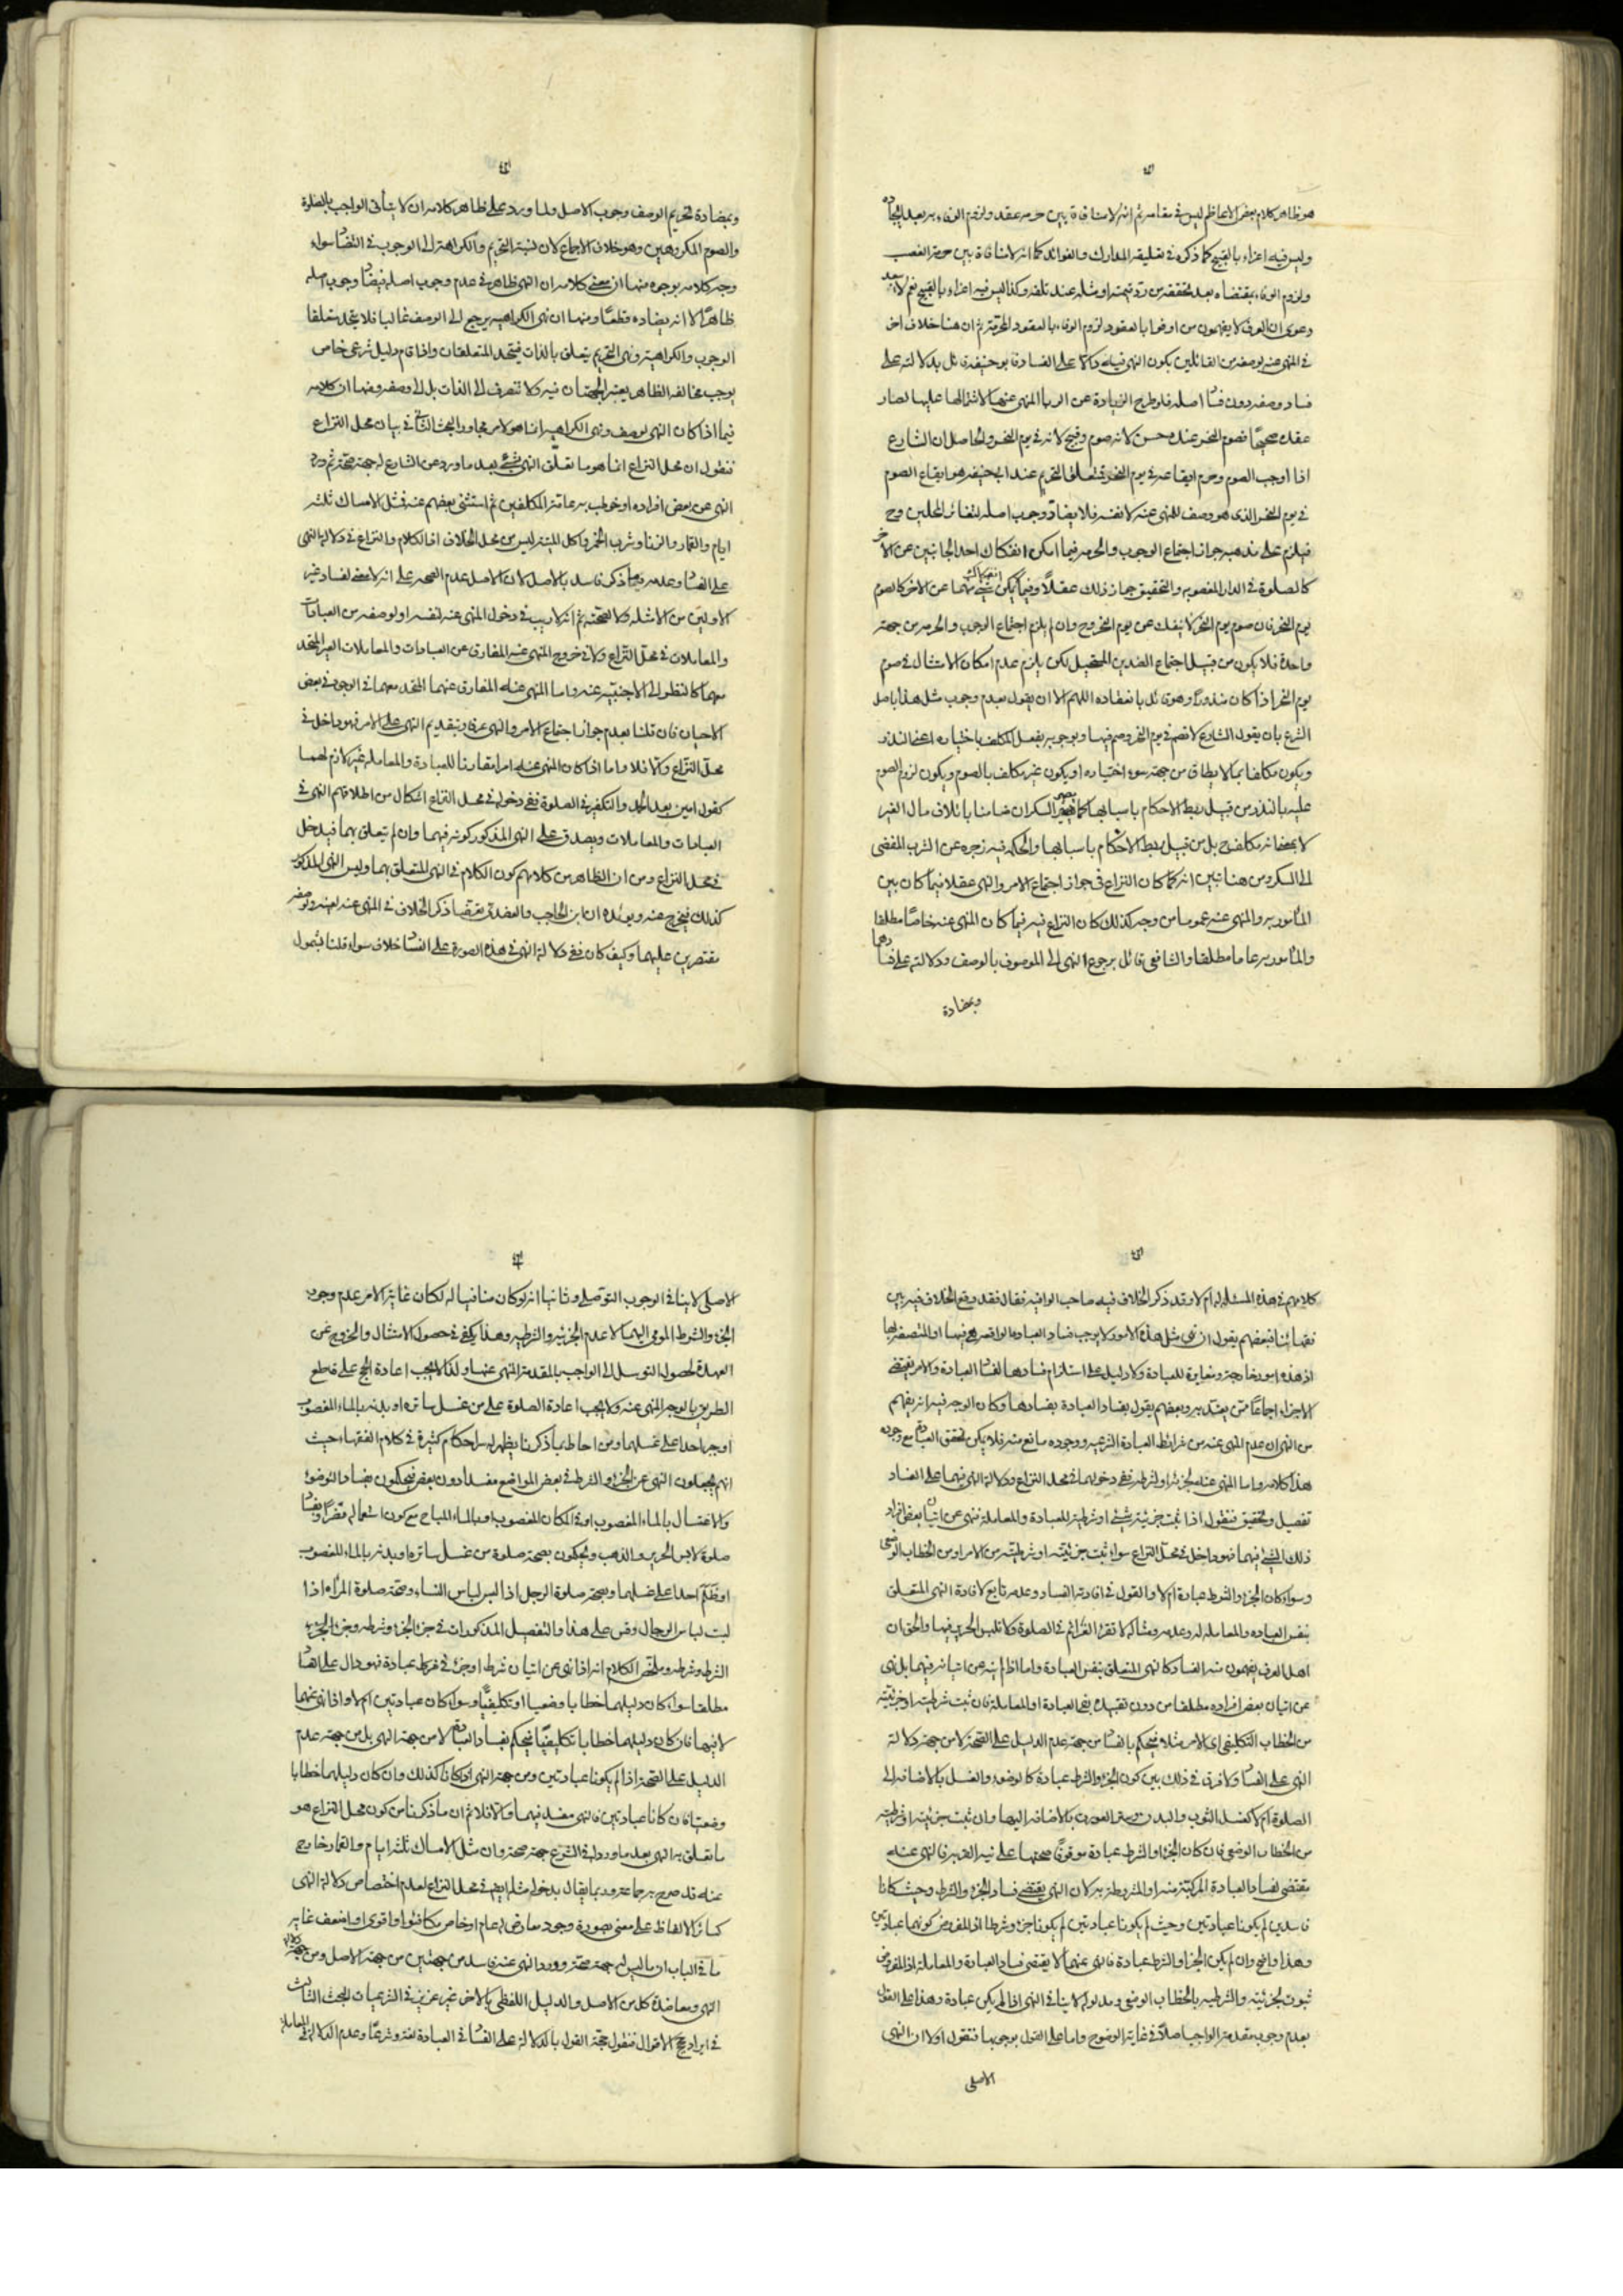 هو ظاهر كلام بعض الاعاظم ليس في مقامه ثم انه لا منافاة بين حرمه عقد ولزوم الوفاء به بعد ايجاده
وليس فيه اغراء بالقبيح كما ذكره في تعليقه المدارك والفوائد كما انه لا منافاة بين حرمة الغصب
ولزوم الوفاء بمقتضاه بعد تحققه من رد قيمته او مثله عند تلفه وكذا ليس فيه اغراء بالقبيح نعم لا يبعد
دعوى ان العرف لا يفهمون من اوفوا بالعقود لزوم الوفاء بالعقود المحرمة ثم ان هنا خلاف اخر
في المنهى عنه لوصفه من القائلين بكون النهى فيه دالا على الفساد فابو حنيفه قائل بدلالته على
فساد وصفه دون فساد اصله فلو طرح الزيادة عن الربا المنهى عنها لاشتمالها عليها لصار
عقده صحيحا فصوم النحر عنده حسن لانه صوم وقبيح لانه في يوم النحر والحاصل ان الشارع
اذا اوجب الصوم وحرم ايقاعه في يوم النحر فمتعلق التحريم عند ابي حنيفه هو ايقاع الصوم
في يوم النحر الذى هو وصف للمنهى عنه لا نفسه فلا يضاد وجوب اصله لتغائر المحلين وح
فيلزم على مذهبه جواز اجتماع الوجوب والحرمه فيما امكن انفكاك احد الجانبين عن الاخر
كالصلوة في الدار المغصوبه والتحقيق جواز ذلك عقلا وفيما لا يمكن انفكاك شيء منهما عن الاخر كالصوم
يوم النحر فان صوم يوم النحر لا ينفك عن يوم النحر وح وان لم يلزم اجتماع الوجوب والحرمه من جهة
واحدة فلا يكون من قبيل اجتماع الضدين المستحيل لكن يلزم عدم امكان الامتثال في صوم
يوم النحر اذا كان منذورا وهو قائل بانعقاده اللهم الا ان يقول بعدم وجوب مثل هذا باصل
الشرع بان يقول الشارع لا تصم في يوم النحر وصم فيها وبوجوبه بفعل المكلف باختياره اعنى النذر
ويكون مكلفا بما لا يطاق من جهة سوء اختياره او يكون غير مكلف بالصوم ويكون لزوم الصوم
عليه بالنذر من قبيل ربط الاحكام باسبابها كما يصير السكران ضامنا باتلاف مال الغير
لا بمعنى انه مكلف ح بل من قبيل ربط الاحكام باسبابها والحكمه فيه زجره عن الشرب المفضى
الى السكر ومن هنا تبين انه كما كان النزاع في جواز اجتماع الامر والنهى عقلا فيما كان بين
المأمور به والمنهى عنه عموما من وجه كذلك كان النزاع فيه فيما كان المنهى عنه خاصا مطلقا
والمأمور به عاما مطلقا والشافعى قائل برجوع النهى الى الموصوف بالوصف ودلالته على فسادهما
وبمضادة
وبمضادة تحريم الوصف وجوب الاصل ولما ورد على ظاهر كلامه ان لا يتأتى الواجب بالصلوة
والصوم المكروهين وهو خلاف الاجماع لان نسبة التحريم والكراهة الى الوجوب في التضاد سواء
وجه كلامه بوجوه منها ان معنى كلامه ان النهى ظاهر في عدم وجوب اصله فيضاد وجوب اصله
ظاهرا لا انه يضاده قطعا ومنها ان نهى الكراهيه يرجع الى الوصف غالبا فلا يتحد متعلقا
الوجوب والكراهية ونهى التحريم يتعلق بالذات فيتحد المتعلقان واذا قام دليل شرعى خاص
يوجب مخالفه الظاهر يعتبر الجهتان فيه ولا تنصرف الى الذات بل الى وصفه ومنها ان كلامه
فيما اذا كان النهى لوصف ونهى الكراهيه انما هو لامر مجاور البحث الثانى في بيان محل النزاع
فنقول ان محل النزاع انما هو ما تعلق النهى بشيء بعد ما ورد عن الشارع له جهة صحة ثم ورد
النهى عن بعض افراده او خوطب به عامة المكلفين ثم استثنى بعضهم عنه فمثل الامساك ثلثه
ايام والقمار والزنا وشرب الخمر واكل الميتة ليس من محل الخلاف اذ الكلام والنزاع في دلاله النهى
على الفساد وعدمه وما ذكر فاسد بالاصل لان الاصل عدم الصحه على انه لا معنى لفساد غير
الاولين من الامثله ولا لصحته ثم انه لا ريب في دخول المنهى عنه لنفسه او لوصفه من العبادات
والمعاملات في محل النزاع ولا في خروج المنهى عنه المفارق عن العبادات والمعاملات الغير المتحد
معهما كالنظر الى الاجنبيه عنه واما المنهى عنه المفارق عنهما المتحد معهما في الوجود في بعض
الاحيان فان قلنا بعدم جواز اجتماع الامر والنهى عرفا وبتقديم النهى على الامر فهو داخل في
محل النزاع والا فلا واما اذا كان المنهى عنه امرا مقارنا للعبادة والمعامله غير لازم لهما
كقول امين بعد الحمد والتكفير في الصلوة ففي دخوله في محل النزاع اشكال من اطلاقهم النهى في
العبادات والمعاملات ويصدق على النهى المذكور كونه فيهما وان لم يتعلق بهما فيدخل
في محل النزاع ومن ان الظاهر من كلامهم كون الكلام في النهى المتعلق بهما وليس النهى المذكور
كذلك فيخرج عنه ويؤيده ان ابن الحاجب والعضدى ذكرا الخلاف في المنهى عنه لعينه ولوصفه
مقتصرين عليهما وكيف كان ففى دلالة النهى في هذه الصورة على الفساد خلاف سواء قلنا بشمول
كلامهم في هذه المسئلة له ام لا وقد ذكر الخلاف فيه صاحب الوافيه فقال فقد وقع الخلاف فيه بين
فقهائنا فبعضهم يقول ان نهى مثل هذه الامور لا يوجب فساد العبادة الواقعه هى فيها او المتصفه بها
اذ هذه امور خارجة ومغايرة للعبادة ولا دليل على استلزام فسادها لفساد العبادة والامر يقتضى
الاجزاء اجماعا ممن يعتد به وبعضهم يقول بفساد العبادة بفسادها وكان الوجه فيه انه يفهم
من النهى ان عدم المنهى عنه من شرائط العبادة الشرعيه ووجوده مانع منه فلا يمكن تحقق العبادة مع وجوده
هذا كلامه واما المنهى عنه لجزئه او لشرطه ففى دخولهما في محل النزاع ودلالة النهى فيهما على الفساد
تفصيل وتحقيق فنقول اذا ثبت جزئية شيء او شرطيته للعبادة والمعاملة فنهى عن اتيان بعض افراد
ذلك الشيء فيهما فهو داخل في محل النزاع سواء ثبت جزئيته او شرطيته من الامر او من الخطاب الوضعى
وسواء كان الجزء والشرط عبادة ام لا والقول في افادته الفساد وعدمه تابع لافادة النهى المتعلق
بنفس العباده والمعامله له وعدمه ومثاله لا تقرء العزائم في الصلوة ولا تلبس الحرير فيها والحق ان
اهل العرف يفهمون منه الفساد كالنهى المتعلق بنفس العبادة واما اذا لم ينه عن اتيانه فيهما بل نهى
عن اتيان بعض افراده مطلقا من دون تقييده بفى العبادة او المعاملة فان ثبت شرطيته او جزئيته
من الخطاب التكليفى اى الامر مثلا فيحكم بالفساد من جهة عدم الدليل على الصحة لا من جهة دلالة
النهى على الفساد ولا فرق في ذلك بين كون الجزء والشرط عبادة كالوضوء والغسل بالاضافه الى
الصلوة ام لا كغسل الثوب والبدن وستر العورة بالاضافه اليها وان ثبت جزئيته او شرطيته
من الخطاب الوضعى فان كان الجزء او الشرط عبادة موقوفا صحتها على نيه القربه فالنهى عنه
يقتضى لفساد العبادة المركبة منه او المشروطة به لان النهى يقتضى فساد الجزء والشرط وحيث كانا
فاسدين لم يكونا عبادتين وحيث لم يكونا عبادتين لم يكونا جزء وشرطا اذ المفروض كونهما عبادتين
وهذا واضح وان لم يكن الجزء او الشرط عبادة فالنهى عنهما لا يقتضى فساد العبادة والمعاملة اذ المفروض
ثبوت الجزئيه والشرطيه بالخطاب الوضعى ومدلوله لا ينافى النهى اذا لم يكن عبادة وهذا على القول
بعدم وجوب مقدمة الواجب اصلا في غاية الوضوح واما على القول بوجوبها فنقول اولا ان النهى
الاصلى
الاصلى لا ينافى الوجوب التوصلى وثانيا انه لو كان منافيا له لكان غاية الامر عدم وجود
الجزء والشرط المومى اليهما لا عدم الجزئيه والشرطيه وهذا يكفى في حصول الامتثال والخروج عن
العهدة لحصول التوسل الى الواجب بالمقدمة المنهى عنها ولذا لا يجب اعادة الحج على قاطع
الطريق بالوجه المنهى عنه ولا يجب اعادة الصلوة على من غسل ساتره او بدنه بالماء المغصوب
او جبر احدا على غسلهما ومن احاط بما ذكرنا يظهر له سر احكام كثيرة في كلام الفقهاء حيث
انهم يجعلون النهى عن الجزء والشرط في بعض المواضع مفسدا دون بعض فيحكمون بفساد الوضوء
والاغتسال بالماء المغصوب او في المكان المغصوب او بالماء المباح مع كون استعماله مضرا وبفساد
صلوة لابس الحرير والذهب ويحكمون بصحة صلوة من غسل ساتره او بدنه بالماء المغصوب
او ظلم احدا على غسلهما وبصحة صلوة الرجل اذا لبس لباس النساء وصحة صلوة المرأة اذا
لبست لباس الرجال وقس على هذا والتفصيل المذكور ات في جزء الجزء وشرطه وجزء
الشرط وشرطه وملخص الكلام انه اذا نهى عن اتيان شرط او جزء في شرط عبادة فهو دال على الفساد
مطلقا سواء كان دليلهما خطابا وضعيا او تكليفيا وسواء كان عبادتين ام لا واذا نهى عنهما
لا فيهما فان كان دليلهما خطابا تكليفيا فيحكم بفساد العبادة لا من جهة النهى بل من جهة عدم
الدليل على الصحة اذا لم يكونا عبادتين ومن جهة النهى ان كانا كذلك وان كان دليلهما خطابا
وضعيا فان كانا عبادتين فالنهى مفسد فيهما والا فلا ثم ان ما ذكرنا من كون محل النزاع هو
ما تعلق به النهى بعد ما ورد له في الشرع جهة صحة وان مثل الامساك ثلثة ايام والقمار خارج
عنه قد صرح به جماعة وربما يقال بدخول مثله ايضا في محل النزاع لعدم اختصاص دلالة النهى
كسائر الالفاظ على معنى بصورة وجود معارض له عام او خاص مكافئ او اقوى او اضعف غايه
ما في الباب ان ما ليس له جهة صحة وورد النهى عنه فاسد من جهتين من جهة الاصل ومن جهة دلالة
النهى ومعاضدة كل من الاصل والدليل اللفظى بالاخر غير عزيز في الشرعيات المبحث الثالث
في ايراد حجج الاقوال فنقول حجة القول بالدلالة على الفساد في العبادة لغة وشرعا وعدم الدلالة في المعاملة